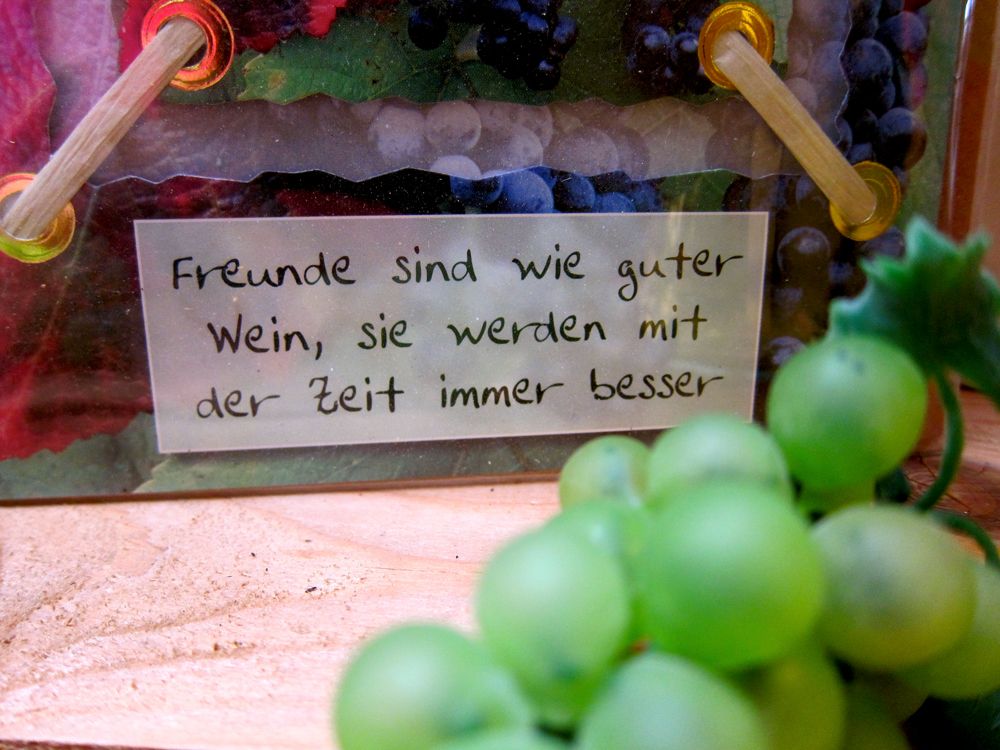 Freunde sind wie guter
Wein, sie werden mit
der Zeit immer besser